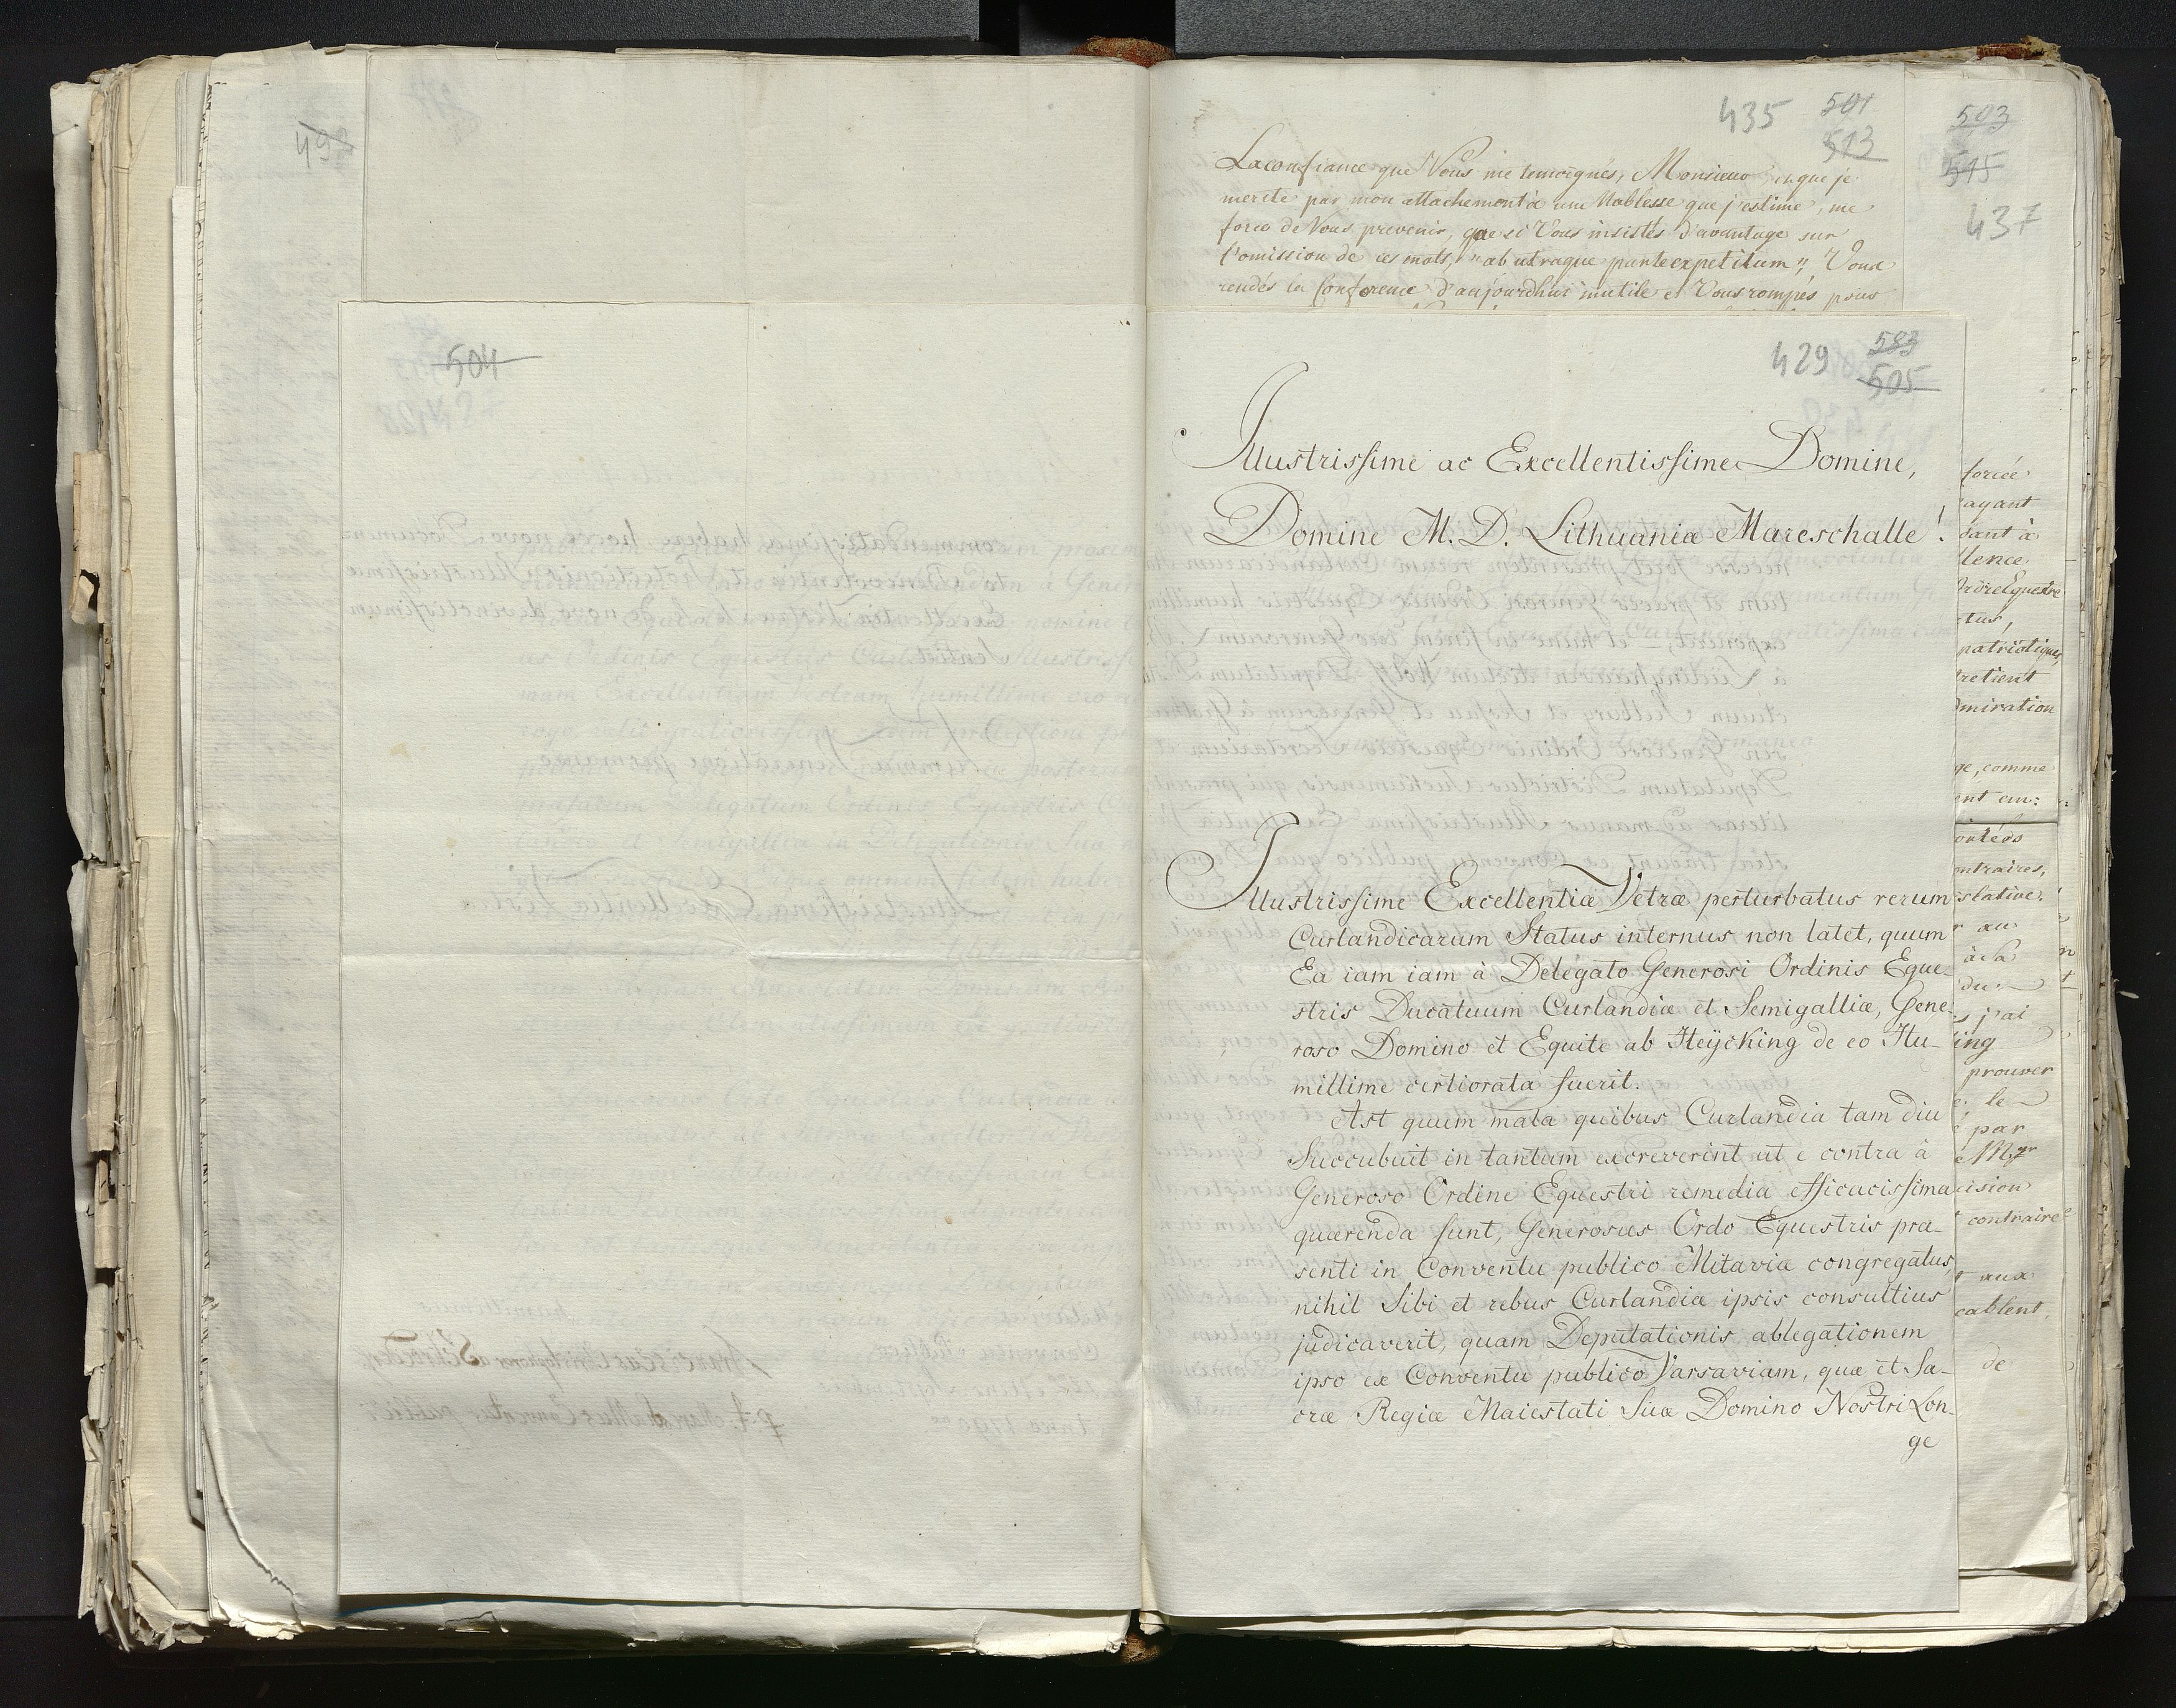 498
504
435 501
513
La confiance que Vous me temoignés, Monsieur, et que je
merite par mon attachement à une Noblesse que j'estime, me
force de Vous prevenir, que si Vous insistés d'avantage sur
l'omission de ces mots, "ab utraque parte expetitum", Vous
rendés la Conference d'aujourdhui inutile et Vous rompés
503
515
437
429 583
505
Illustrissime ac Excellentissime Domine,
Domine M. D. Lithuaniæ Mareschalle!
Illustrissime Excellentiæ Vetræ perturbatus rerum
Curlandicarum Status internus non latet, quum
Ea iam iam à Delegato Generosi Ordinis Eque-
stris Ducatuum Curlandiæ et Semigalliæ, Gene-
roso Domino et Equite ab Heÿcking de eo Hu-
millime certiorata fuerit.
Ast quum mala quibus Curlandia tam diu
Succubuit in tantum excreverint ut e contra à
Generoso Ordine Equestri remedia efficacissima
quærenda sunt, Generosus Ordo Equestris præ-
senti in Conventu publico Mitaviæ congregatus,
nihil Sibi et rebus Curlandiæ ipsis consultius
judicaverit, quam Deputationis ablegationem
ipso ex Conventu publico Varsaviam, quæ et Sa-
cræ Regiæ Maiestati Suæ Domino Nostri Lon-
ge
forcée
ayant
dant à
lence
Ordre Equestre
tus,
patriotiques,
retient
miration
ge, comme
ent en:
ontraires,
slative.
au
à la
du
j'ai
ing
prouver
le
par
Mgr
cision
contraire
aux
cablent,
de